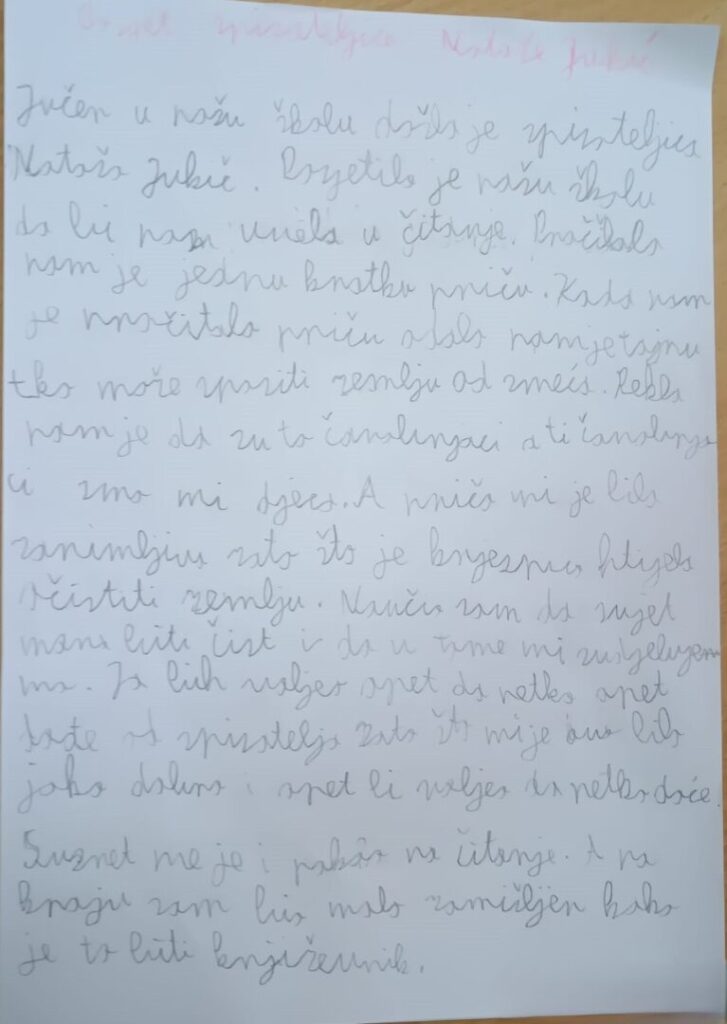 Susret spisateljice Nataše Jukić
Jučer u našu školu došla je spisateljica
Nataša Jukić. Posjetila je našu školu
da bi nam uvela u čitanje. Pročitala
nam je jednu kratku priču. Kada nam
je pročitala priču odala nam je tajnu
tko može spasiti zemlju od smeća. Rekla
nam je da su to čarolinjaci a ti čarolinja
ci smo mi djeca. A priča mi je bila
zanimljiva zato što je knjeginja htjela
očistiti zemlju. Naučio sam da svijet
mora biti čist i da u tome mi sudjelujem
mo. Ja bih volje opet da netko opet
dođe od spisatelja zato što mi je ovo bilo
jako dobro i opet bi voljeo da netko dođe.
Susret me je i potakao na čitanje. A na
kraju sam bio malo zamišljen kako
je to biti književnik.